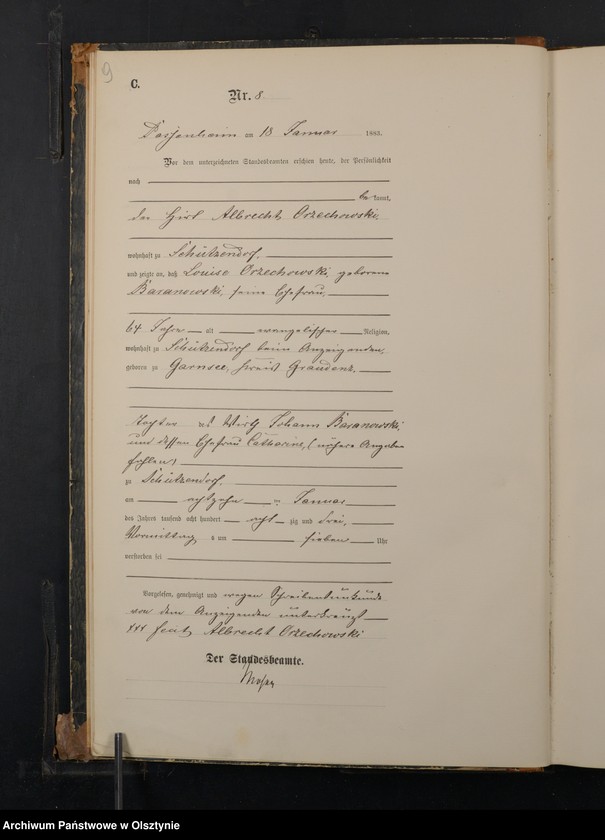 9
C.
Nr. 8
Passenheim am 18 Januar 1883.
Vor dem unterzeichneten Standesbeamten erschien heute, der Persönlichkeit
nach
be kannt,
der Hirt Albrecht Orzechowski,
wohnhaft zu Schützendorf,
und zeigte an, daß Louise Orzechowski, geborene
Baranowski, seine Ehefrau,
64 Jahre alt evangelischer Religion,
wohnhaft zu Schützendorf beim Anzeigenden,
geboren zu Garnsee, Kreis Graudenz,
Tochter des Wirth Johann Baranowski
und dessen Ehefrau Catharine, (nähere Angaben
fehlen)
zu Schützendorf,
am achtzehn ten Januar
des Jahres tausend acht hundert acht zig und drei,
Vormittag s um sieben Uhr
verstorben sei
Vorgelesen, genehmigt und wegen Schreibensunkunde
von dem Anzeigenden unterkreuzt
+++ fecit Albrecht Orzechowski
Der Standesbeamte.
Archiwum Państwowe w Olsztynie